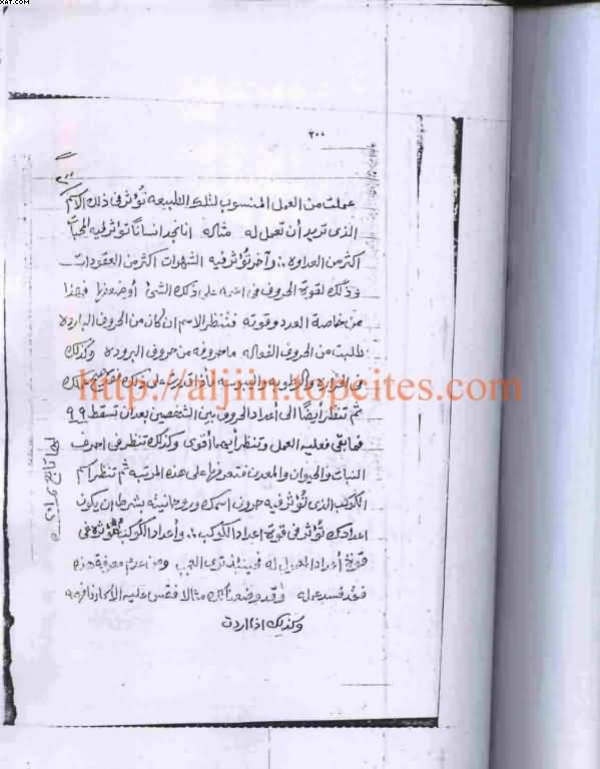 XAT.COM
٢٠٠
عملت من العمل المنسوب لتلك الطبيعه تؤثر فى ذلك الاسم
الذى تريد أن تعمل له مثاله انا نجد انساناً تؤثر فيه المحبات
اكثر من العداوه .. وآخر تؤثر فيه الشهوات اكثر من العقودات
وذلك لقوة الحروف فى اسمه على ذلك الشئ أو ضعفها فهذا
من خاصة العدد وقوته فتنظر الاسم ان كان من الحروف البارده
طلبت من الحروف الفعاله ما حروفه من حروف البروده وكذلك
فى الحراره والرطوبه واليبوسه على ذلك
http://aljiin.topcites.com
ثم تنظر أيضاً الى أعداد الحروف بين الشخصين بعد ان تسقط ٩ ٩
فما بقى فعليه العمل وتنظر أيهما أقوى وكذلك تنظر فى احرف
النبات والحيوان والمعدن فتعرفها على هذه المرتبة ثم تنظر اسم
الكوكب الذى تؤثر فيه حروف اسمك وروحانيته بشرط ان يكون
اعدادك تؤثر فى قوة اعداد الكوكب .. وأعداد الكوكب مؤثرة فى
قوة أعداد المعمول له فحينئذ ترى العجب ومن اعدم معرفة هذه
فقد فسد عمله وقد وضعنا لك مثالا فقس عليه
وكذلك اذا اردت